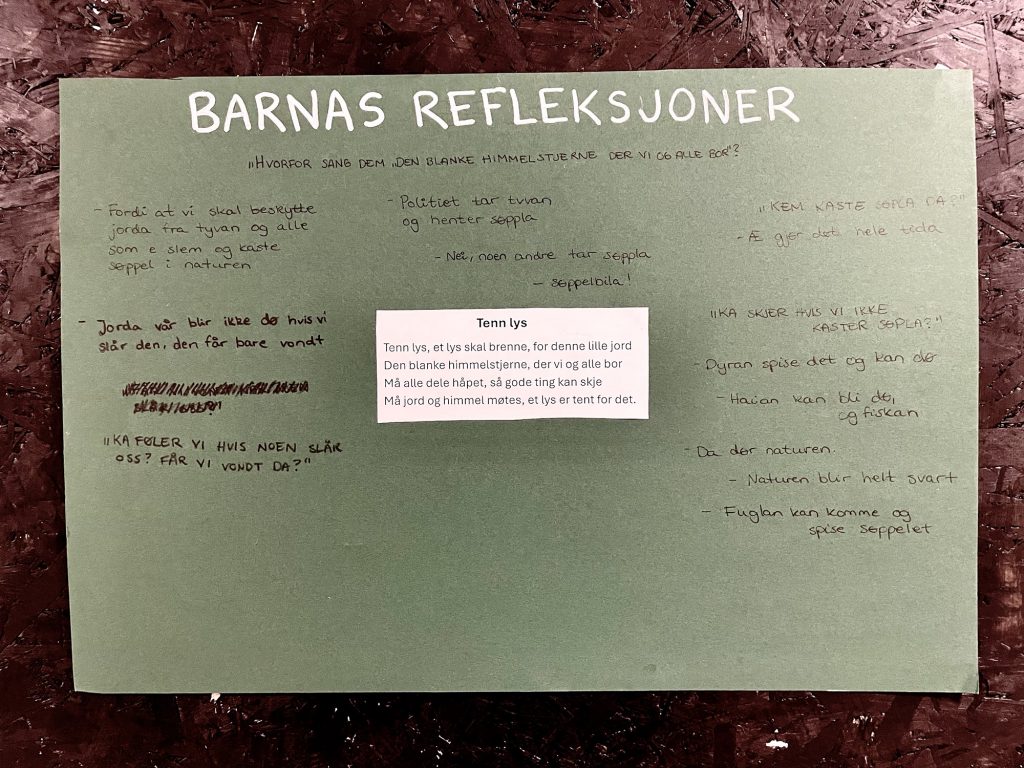 BARNAS REFLEKSJONER
"HVORFOR SANG DEM "DEN BLANKE HIMMELSTJERNE DER VI OG ALLE BOR"?
- Fordi at vi skal beskytte
jorda fra tyvan og alle
som e slem og kaste
søppel i naturen
- Jorda vår blir ikke dø hvis vi
slår den, den får bare vondt
"KA FØLER VI HVIS NOEN SLÅR
OSS? FÅR VI VONDT DA?"
- Politiet tar tyvan
og henter søppla
- Nei, noen andre tar søppla
- søppelbila!
Tenn lys
Tenn lys, et lys skal brenne, for denne lille jord
Den blanke himmelstjerne, der vi og alle bor
Må alle dele håpet, så gode ting kan skje
Må jord og himmel møtes, et lys er tent for det.
"KEM KASTE SØPLA DA?"
- Æ gjør det hele tida
"KA SKJER HVIS VI IKKE
KASTER SØPLA?"
- Dyran spise det og kan dø
- Haian kan bli dø,
og fiskan
- Da dør naturen.
- Naturen blir helt svart
- Fuglan kan komme og
spise søppelet